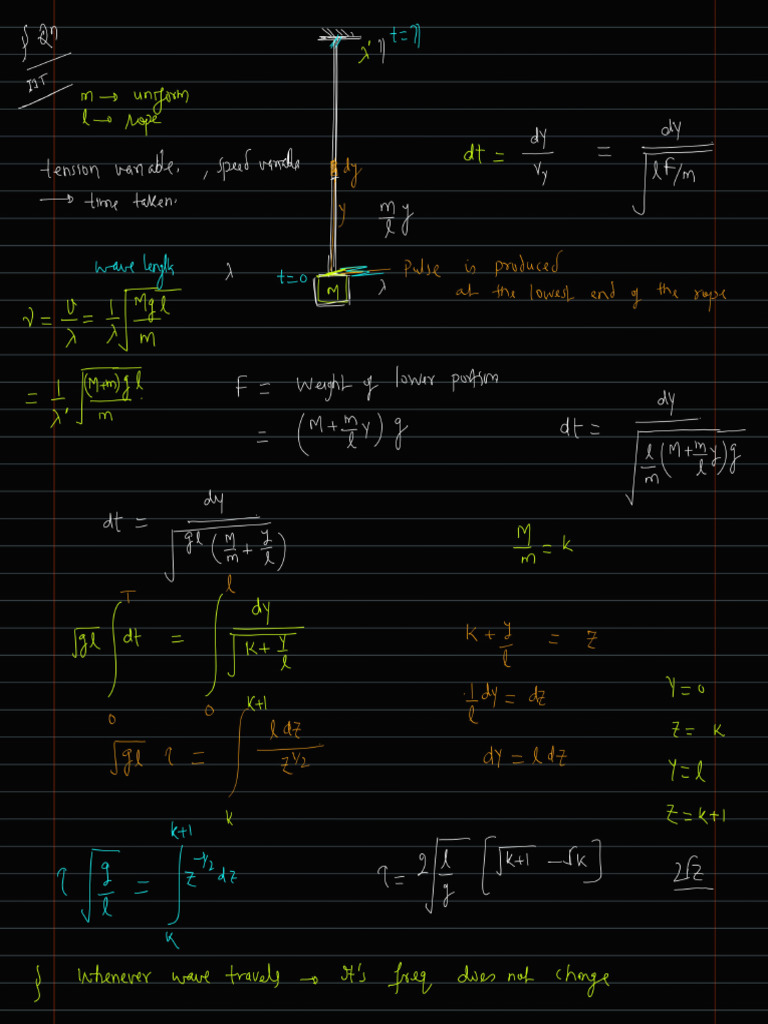 ∫ Qn
IIT
t = η
λ' η
m → uniform
l → rope
tension variable. , speed variable
→ time taken.
dy
y
m/l y
dt = dy/Vy = dy/√(lF/m)
wave length λ
t=0
M
λ
Pulse is produced
at the lowest end of the rope
ν = v/λ = 1/λ √(Mgl/m)
= 1/λ' √((M+m)gl/m)
F = Weight of lower portion
= (M + m/l y) g
dt = dy/√(l/m (M + m/l y) g)
dt = dy/√(gl (M/m + y/l))
M/m = k
√gl ∫₀ᵀ dt = ∫₀ˡ dy/√(k + y/l)
k + y/l = z
1/l dy = dz
dy = l dz
Y = 0
Z = k
Y = l
Z = k+1
√gl τ = ∫ₖᵏ⁺¹ l dz/z^½
τ √(g/l) = ∫ₖᵏ⁺¹ z^-½ dz
τ = 2√(l/g) [√k+1 - √k]
2√z
∫ Whenever wave travels → It's freq does not change